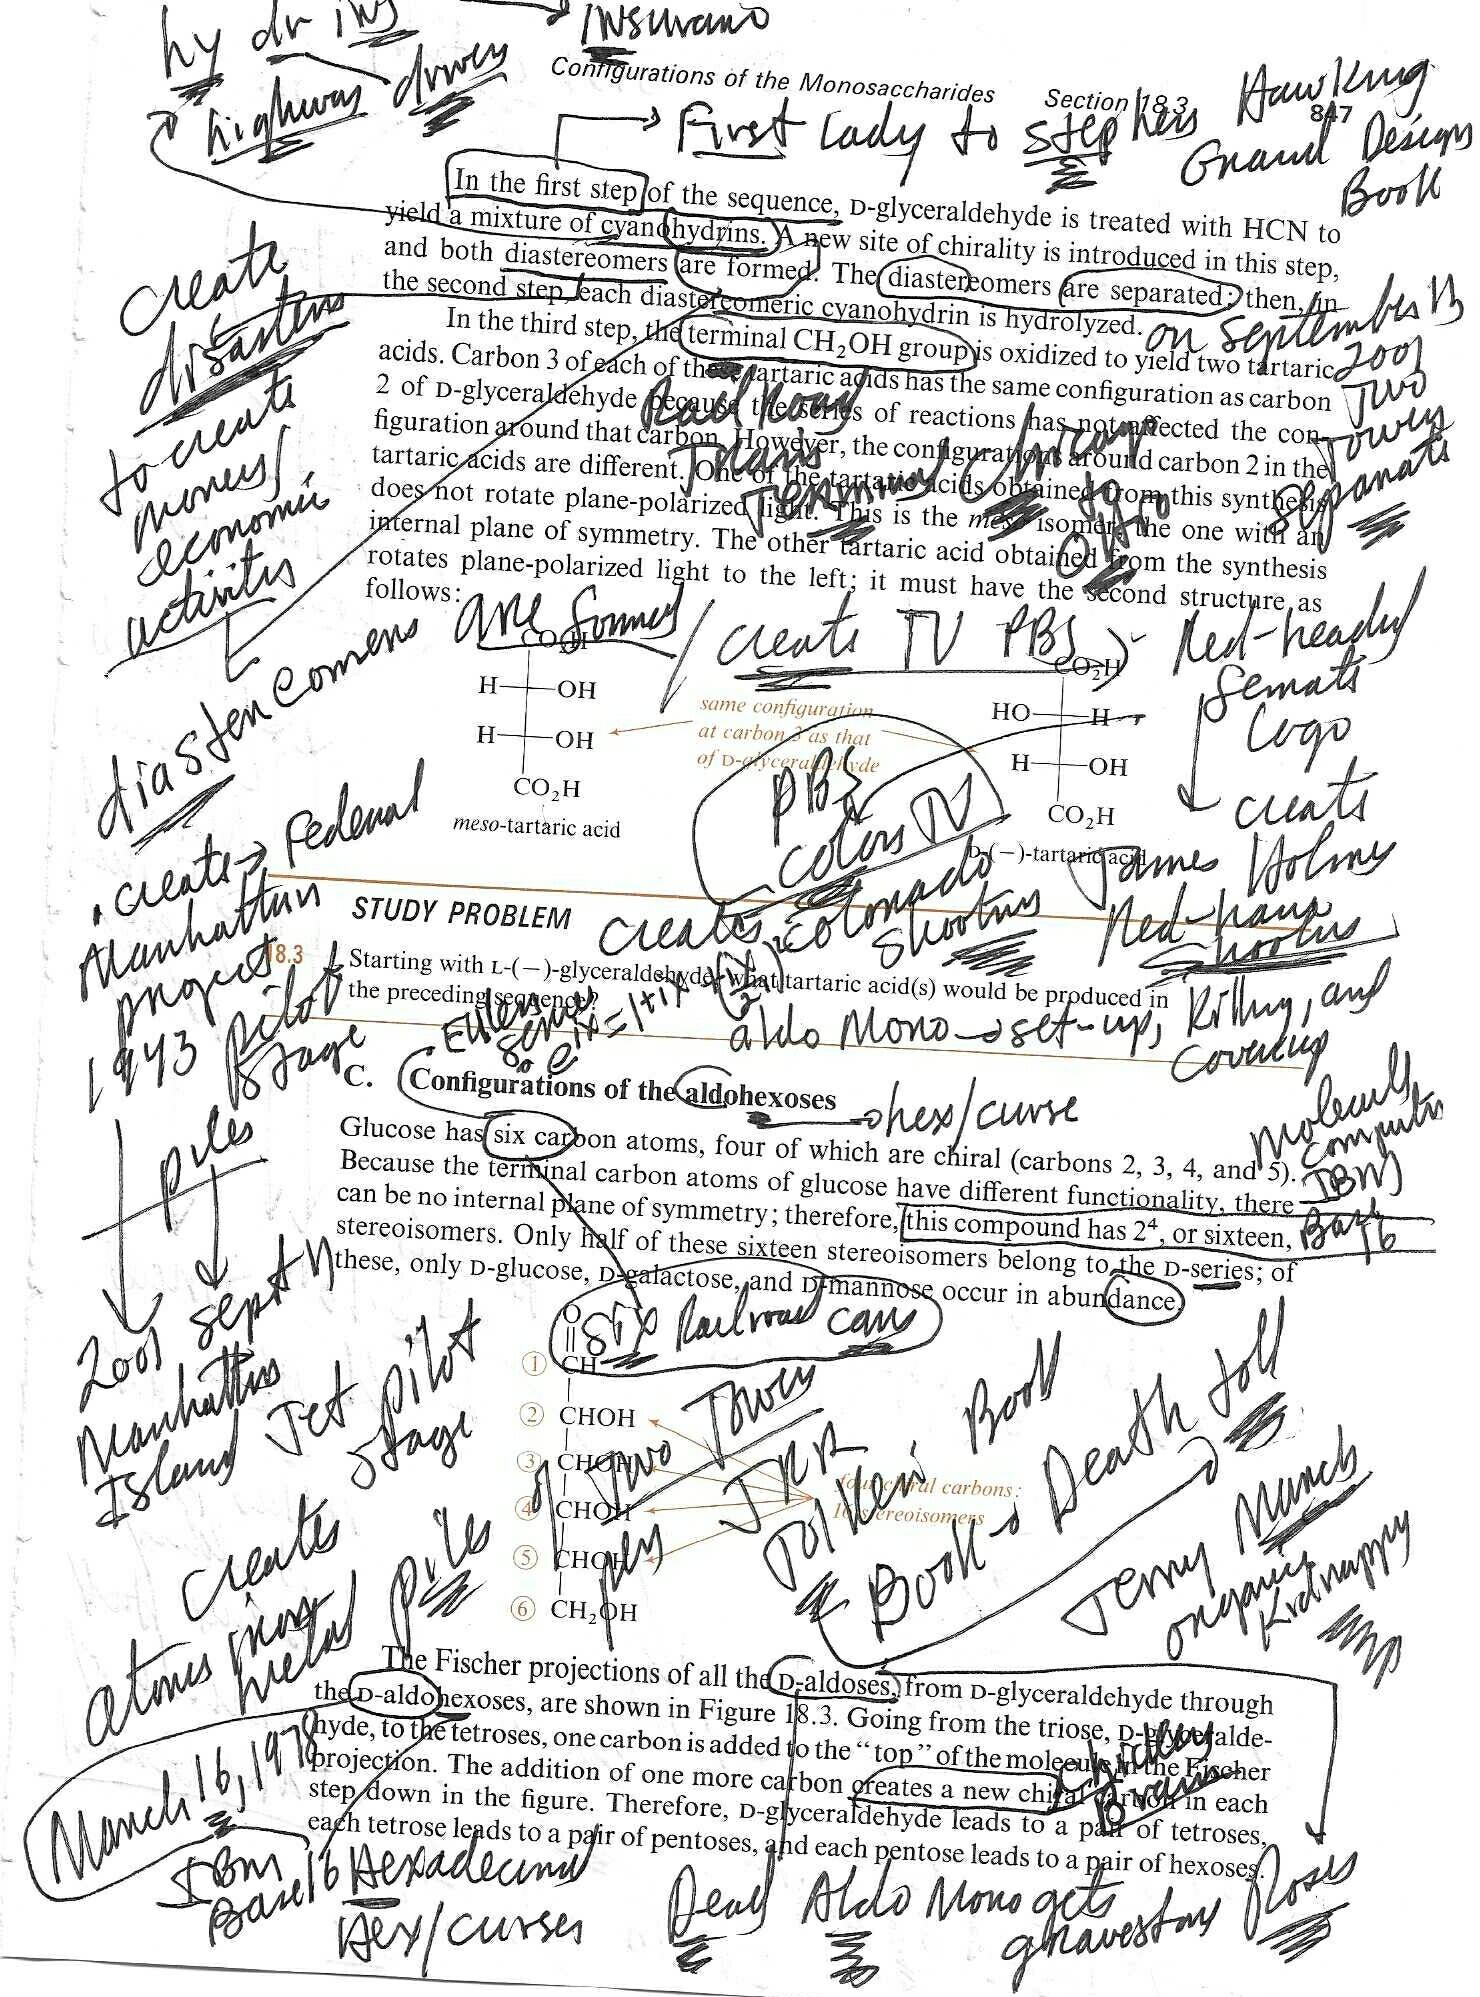 hy dr ins
Insurano
highway drivers
Configurations of the Monosaccharides Section 18.3 847
Hawking
Grand Designs
Book
First Lady to Stephens
In the first step of the sequence, D-glyceraldehyde is treated with HCN to
yield a mixture of cyanohydrins. A new site of chirality is introduced in this step,
and both diastereomers are formed. The diastereomers are separated; then, in
the second step, each diastereomeric cyanohydrin is hydrolyzed.
In the third step, the terminal CH₂OH group is oxidized to yield two tartaric
acids. Carbon 3 of each of these tartaric acids has the same configuration as carbon
2 of D-glyceraldehyde because the series of reactions has not affected the con-
figuration around that carbon. However, the configurations around carbon 2 in the
tartaric acids are different. One of the tartaric acids obtained from this synthesis
does not rotate plane-polarized light. This is the meso isomer, the one with an
internal plane of symmetry. The other tartaric acid obtained from the synthesis
rotates plane-polarized light to the left; it must have the second structure as
follows:
create
disasters
to create
money/
economic
activities
on September 11
2001
Two
Towers
Separate
Railroad
Terminal Chicago
diastercomens are formed / creates TV PBS
Red-headed
female
Logo
creates
James Holmes
Red-hand
Shooting
CO₂H
H OH
H OH
CO₂H
meso-tartaric acid
same configuration
at carbon 3 as that
of D-glyceraldehyde
CO₂H
HO H
H OH
CO₂H
D-(−)-tartaric acid
PBS
colors TV
creates Colorado
Shooting
creates → Federal
Manhattan
project
1943 pilot
stage
piles
2001 Sept 11
Manhattan
Island Jet pilot
stage
creates
atomic
metal piles
STUDY PROBLEM
18.3 Starting with L-(−)-glyceraldehyde, what tartaric acid(s) would be produced in
the preceding sequence?
Eulers
series
aldo Mono → set-up, Killing, and
Coverup
C. Configurations of the aldohexoses
→ hex/curse
Molecule
Computer
IBM
Base
16
Glucose has six carbon atoms, four of which are chiral (carbons 2, 3, 4, and 5).
Because the terminal carbon atoms of glucose have different functionality, there
can be no internal plane of symmetry; therefore, this compound has 2⁴, or sixteen,
stereoisomers. Only half of these sixteen stereoisomers belong to the D-series; of
these, only D-glucose, D-galactose, and D-mannose occur in abundance.
six Railroad cars
O
① CH
② CHOH
③ CHOH
④ CHOH
⑤ CHOH
⑥ CH₂OH
four chiral carbons:
16 stereoisomers
of Two Towers
per JRR
Tolkein Book
Book → Death toll
Jerry March
organic
Kidnappy
The Fischer projections of all the D-aldoses, from D-glyceraldehyde through
the D-aldohexoses, are shown in Figure 18.3. Going from the triose, D-glyceralde-
hyde, to the tetroses, one carbon is added to the “top” of the molecule in the Fischer
projection. The addition of one more carbon creates a new chiral carbon in each
step down in the figure. Therefore, D-glyceraldehyde leads to a pair of tetroses,
each tetrose leads to a pair of pentoses, and each pentose leads to a pair of hexoses.
March 16, 1978
IBM
Base 16 Hexadecimal
Hex/curses
Dead Aldo Mono gets
gravestone Roses